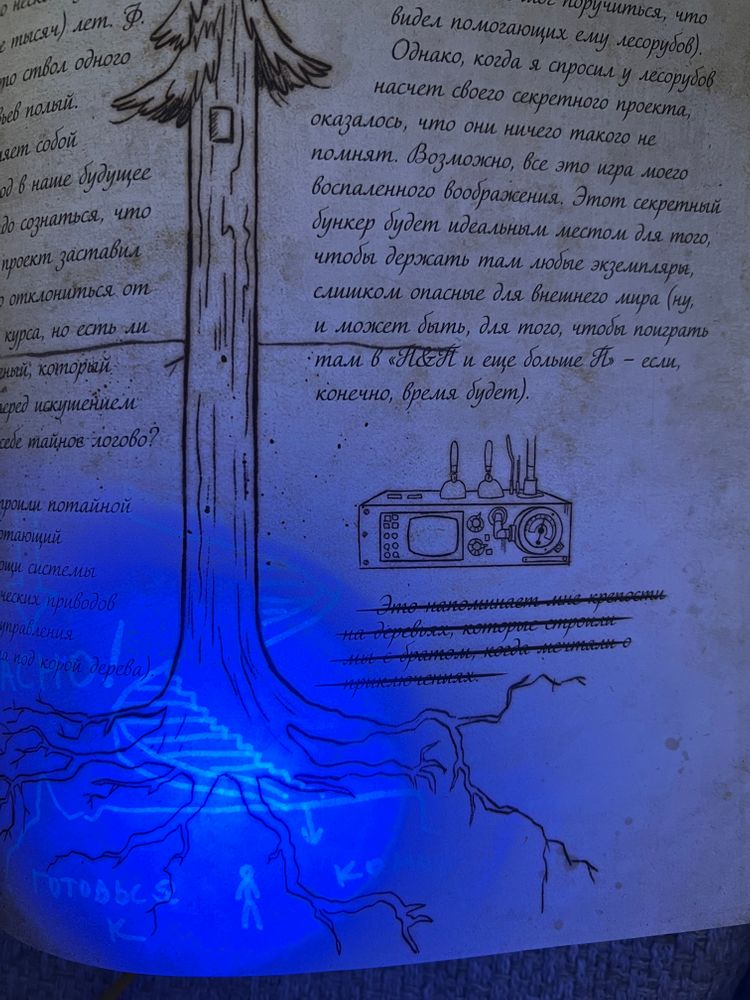 тысяч) лет. Ф.
ствол одного
полый.
собой
в наше будущее
сознаться, что
проект заставил
отклониться от
курса, но есть ли
который
искушением
себе тайное логово?
потайной
системы
приводов
управления
под корой дерева).
поручиться, что
видел помогающих ему лесорубов).
Однако, когда я спросил у лесорубов
насчет своего секретного проекта,
оказалось, что они ничего такого не
помнят. Возможно, все это игра моего
воспаленного воображения. Этот секретный
бункер будет идеальным местом для того,
чтобы держать там любые экземпляры,
слишком опасные для внешнего мира (ну,
и может быть, для того, чтобы поиграть
там в «П&П и еще больше П» – если,
конечно, время будет).
Это напоминает мне крепости
на деревьях, которые строили
мы с братом, когда мечтали о
приключениях.
готовься
к